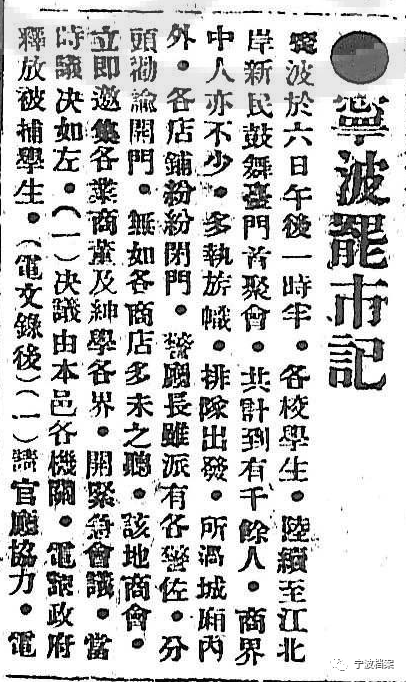 ●寧波罷市記
寗波於六日午後一時半。各校學生。陸續至江北
岸新民鼓舞臺門首聚會。共計到有千餘人。商界
中人亦不少。多執旂幟。排隊出發。所過城廂內
外。各店鋪紛紛閉門。警廳長雖派有各警佐。分
頭勸諭開門。無如各商店多未之聽。該地商會。
立即邀集各業商董及紳學各界。開緊急會議。當
時議決如左。(一)決議由本邑各機關。電請政府
釋放被捕學生。(電文錄後)(一)請官廳協力。電
宁波档案